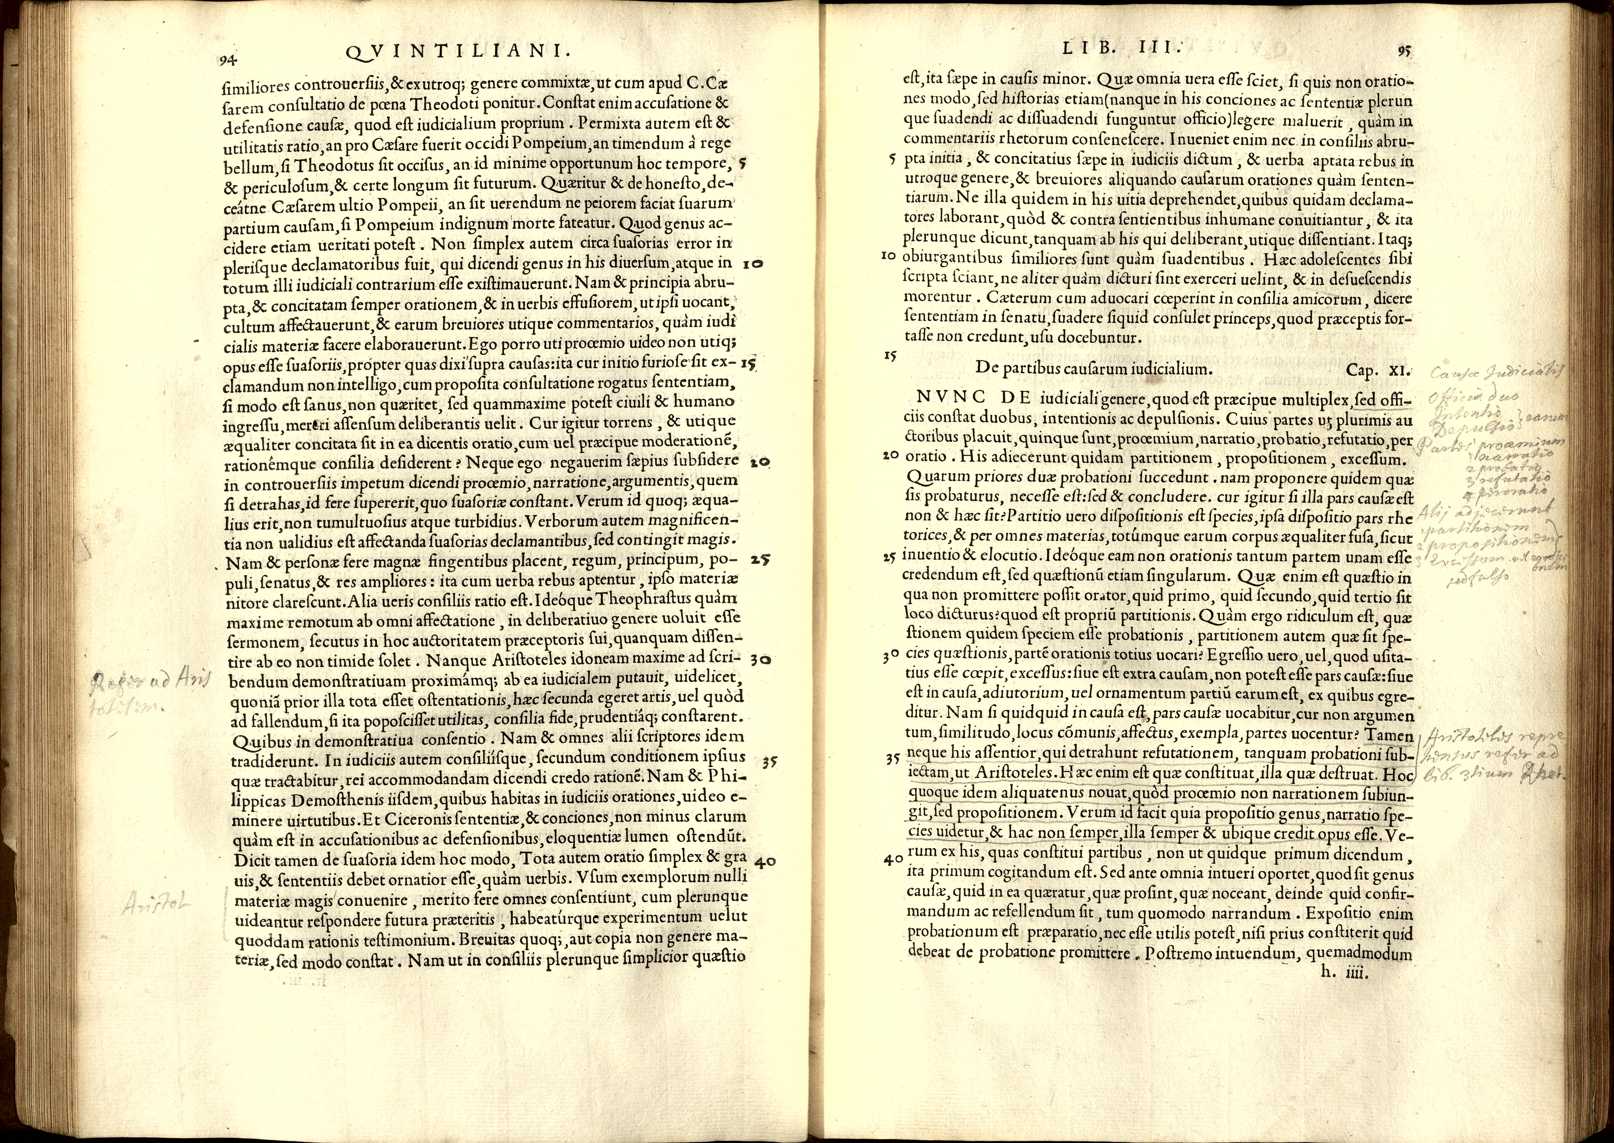 94
QVINTILIANI.
similiores controuersiis,& ex utroq; genere commixtæ,ut cum apud C.Cæ
sarem consultatio de pœna Theodoti ponitur. Constat enim accusatione &
defensione causæ, quod est iudicialium proprium. Permixta autem est &
utilitatis ratio,an pro Cæsare fuerit occidi Pompeium,an timendum à rege
bellum,si Theodotus sit occisus,an id minime opportunum hoc tempore, 5
& periculosum,& certe longum sit futurum. Quæritur & de honesto,de-
ceátne Cæsarem ultio Pompeii, an sit uerendum ne peiorem faciat suarum
partium causam,si Pompeium indignum morte fateatur. Quod genus ac-
cidere etiam ueritati potest. Non simplex autem circa suasorias error in
plerisque declamatoribus fuit, qui dicendi genus in his diuersum,atque in 10
totum illi iudiciali contrarium esse existimauerunt. Nam & principia abru-
pta,& concitatam semper orationem,& in uerbis effusiorem,ut ipsi uocant,
cultum affectauerunt,& earum breuiores utique commentarios, quàm iudi
cialis materiæ facere elaborauerunt. Ego porro uti procemio uideo non utiq;
opus esse suasoriis,propter quas dixi supra causas:ita cur initio furiose sit ex- 15
clamandum non intelligo,cum proposita consultatione rogatus sententiam,
si modo est sanus,non quæritet, sed quammaxime potest ciuili & humano
ingressu,mereri assensum deliberantis uelit. Cur igitur torrens, & utique
æqualiter concitata sit in ea dicentis oratio,cum uel præcipue moderationẽ,
rationémque consilia desiderent? Neque ego negauerim sæpius subsidere 20
in controuersiis impetum dicendi procemio,narratione,argumentis,quem
si detrahas,id fere supererit,quo suasoriæ constant. Verum id quoq; æqua-
lius erit,non tumultuosius atque turbidius. Verborum autem magnificen-
tia non ualidius est affectanda suasorias declamantibus,sed contingit magis.
Nam & personæ fere magnæ fingentibus placent, regum, principum, po- 25
puli,senatus,& res ampliores: ita cum uerba rebus aptentur, ipso materiæ
nitore clarescunt. Alia ueris consiliis ratio est. Ideóque Theophrastus quàm
maxime remotum ab omni affectatione, in deliberatiuo genere uoluit esse
sermonem, secutus in hoc auctoritatem præceptoris sui,quanquam dissen-
tire ab eo non timide solet. Nanque Aristoteles idoneam maxime ad scri- 30
bendum demonstratiuam proximámq; ab ea iudicialem putauit, uidelicet,
quoniã prior illa tota esset ostentationis,hæc secunda egeret artis,uel quòd
ad fallendum,si ita poposcisset utilitas, consilia fide,prudentiáq; constarent.
Quibus in demonstratiua consentio. Nam & omnes alii scriptores idem
tradiderunt. In iudiciis autem consiliísque, secundum conditionem ipsius 35
quæ tractabitur,rei accommodandam dicendi credo rationẽ. Nam & Phi-
lippicas Demosthenis iisdem,quibus habitas in iudiciis orationes,uideo e-
minere uirtutibus. Et Ciceronis sententiæ,& conciones,non minus clarum
quàm est in accusationibus ac defensionibus,eloquentiæ lumen ostendũt.
Dicit tamen de suasoria idem hoc modo, Tota autem oratio simplex & gra 40
uis,& sententiis debet ornatior esse,quàm uerbis. Vsum exemplorum nulli
materiæ magis conuenire, merito fere omnes consentiunt, cum plerunque
uideantur respondere futura præteritis, habeatúrque experimentum uelut
quoddam rationis testimonium. Breuitas quoq;,aut copia non genere ma-
teriæ,sed modo constat. Nam ut in consiliis plerunque simplicior quæstio
Refer ad Aris
totelem.
Aristot
LIB. III.
95
est,ita sæpe in causis minor. Quæ omnia uera esse sciet, si quis non oratio-
nes modo,sed historias etiam(nanque in his conciones ac sententiæ plerun
que suadendi ac dissuadendi funguntur officio)legere maluerit, quàm in
commentariis rhetorum consenescere. Inueniet enim nec in consiliis abru-
5 pta initia, & concitatius sæpe in iudiciis dictum, & uerba aptata rebus in
utroque genere,& breuiores aliquando causarum orationes quàm senten-
tiarum. Ne illa quidem in his uitia deprehendet,quibus quidam declama-
tores laborant,quòd & contra sentientibus inhumane conuitiantur, & ita
plerunque dicunt,tanquam ab his qui deliberant,utique dissentiant. Itaq;
10 obiurgantibus similiores sunt quàm suadentibus. Hæc adolescentes sibi
scripta sciant,ne aliter quàm dicturi sint exerceri uelint, & in desuescendis
morentur. Cæterum cum aduocari cœperint in consilia amicorum, dicere
sententiam in senatu,suadere siquid consulet princeps,quod præceptis for-
tasse non credunt,usu docebuntur.
15
De partibus causarum iudicialium. Cap. XI.
NVNC DE iudiciali genere,quod est præcipue multiplex,sed offi-
ciis constat duobus, intentionis ac depulsionis. Cuius partes ut plurimis au
ctoribus placuit,quinque sunt,procemium,narratio,probatio,refutatio,per
20 oratio. His adiecerunt quidam partitionem, propositionem, excessum.
Quarum priores duæ probationi succedunt. nam proponere quidem quæ
sis probaturus, necesse est:sed & concludere. cur igitur si illa pars causæ est
non & hæc sit? Partitio uero dispositionis est species,ipsa dispositio pars rhe
torices,& per omnes materias,totúmque earum corpus æqualiter fusa,sicut
25 inuentio & elocutio. Ideóque eam non orationis tantum partem unam esse
credendum est,sed quæstionũ etiam singularum. Quæ enim est quæstio in
qua non promittere possit orator,quid primo, quid secundo,quid tertio sit
loco dicturus? quod est propriũ partitionis. Quàm ergo ridiculum est, quæ
stionem quidem speciem esse probationis, partitionem autem quæ sit spe-
30 cies quæstionis,partẽ orationis totius uocari? Egressio uero,uel,quod usita-
tius esse cœpit,excessus:siue est extra causam,non potest esse pars causæ:siue
est in causa,adiutorium,uel ornamentum partiũ earum est, ex quibus egre-
ditur. Nam si quidquid in causa est,pars causæ uocabitur,cur non argumen
tum,similitudo,locus cõmunis,affectus,exempla,partes uocentur? Tamen
35 neque his assentior,qui detrahunt refutationem, tanquam probationi sub-
iectam,ut Aristoteles. Hæc enim est quæ constituat,illa quæ destruat. Hoc
quoque idem aliquatenus nouat,quòd procemio non narrationem subiun-
git,sed propositionem. Verum id facit quia propositio genus,narratio spe-
cies uidetur,& hac non semper,illa semper & ubique credit opus esse. Ve-
40 rum ex his, quas constitui partibus, non ut quidque primum dicendum,
ita primum cogitandum est. Sed ante omnia intueri oportet,quod sit genus
causæ,quid in ea quæratur,quæ prosint,quæ noceant, deinde quid confir-
mandum ac refellendum sit, tum quomodo narrandum. Expositio enim
probationum est præparatio,nec esse utilis potest,nisi prius constiterit quid
debeat de probatione promittere. Postremo intuendum, quemadmodum
h. iiii.
Causæ Judicialis
Officia duo
Intentio
Depulsio
Partes proœmium
narratio
probatio
refutatio
peroratio
Alij adjecerunt
partitionem
propositionem
Excessum
Aristotelis repre
hensus refer ad
lib. 3tium Rhet.